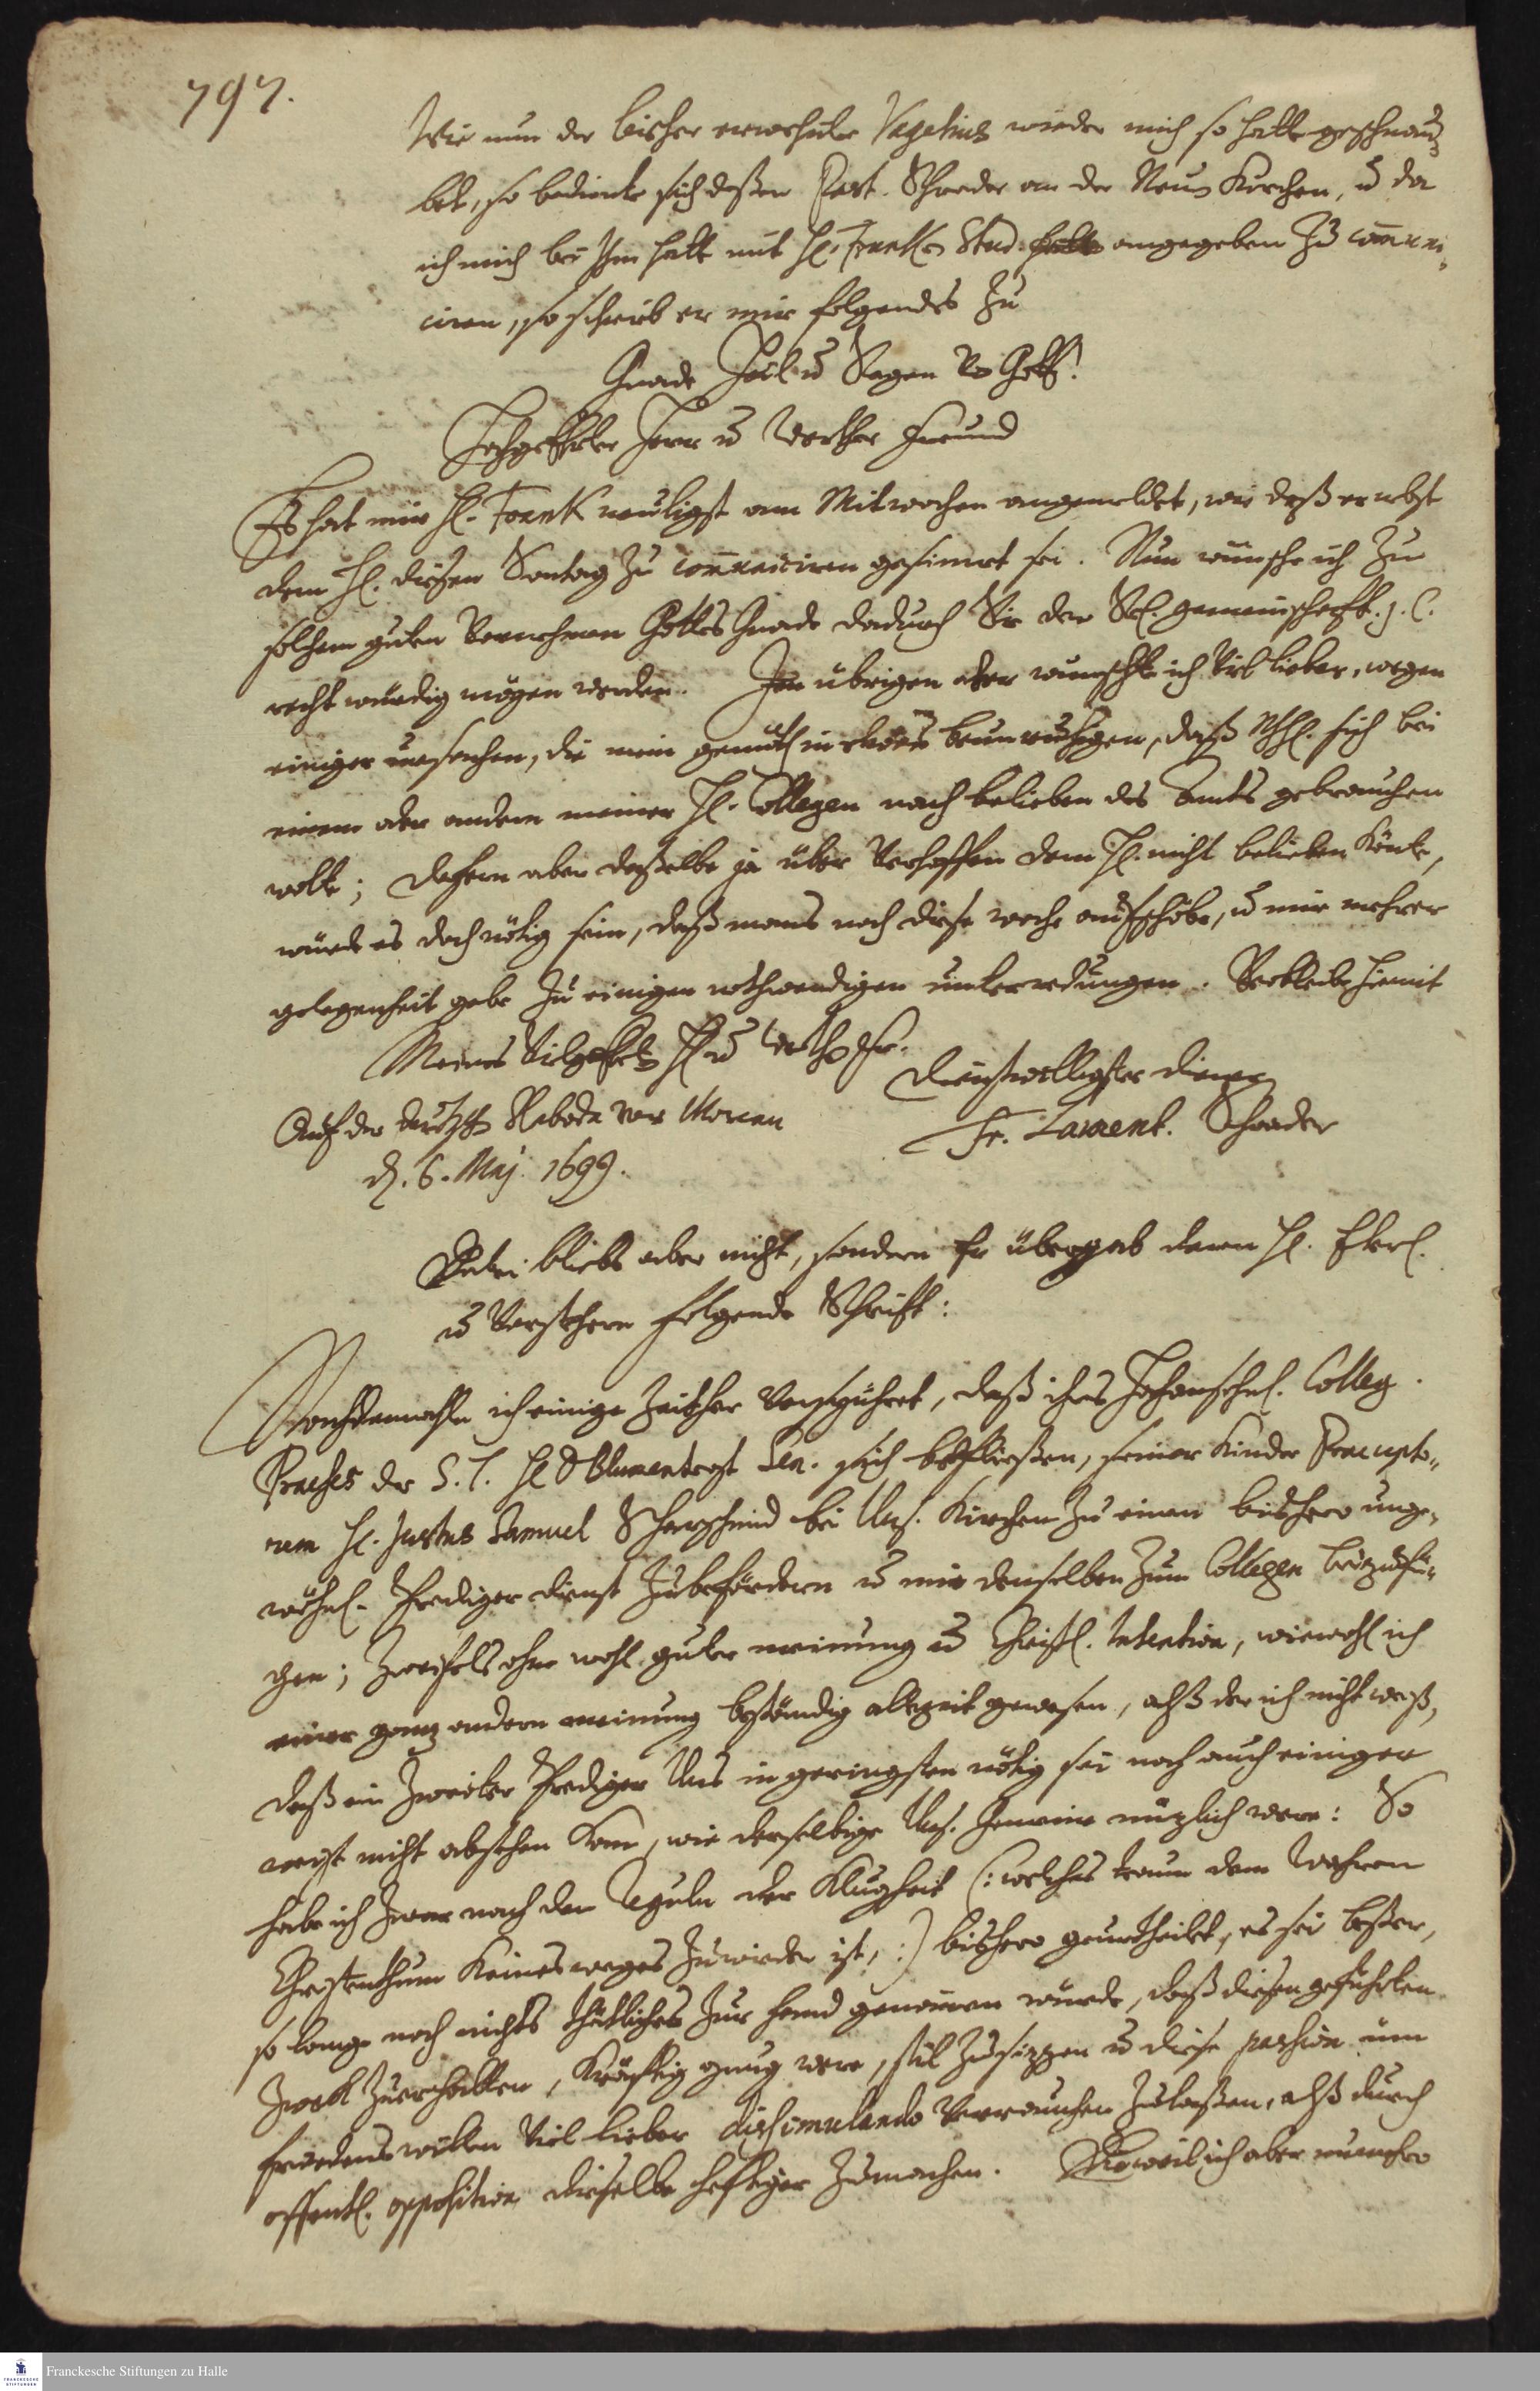 797.
Wie nun der bisher erwehnte Vagetius wieder mich so hatte geschnau-
bet, so bediente sich deßen Past. Schrader an der Neuen Kirchen, u da
ich mich bei Ihm hatte mit H. Franken Stud. angegeben zu com̅uni-
ciren, so schrieb er mir folgendes zu
Gnade Heil u Segen v Gott!
Hochgeehrter Herr u Werther Freund
Es hat mir H. Frank neuligst am Mitwochen angemeldet, wie daß er nebst
dem H. diesen Sontag zu com̅uniciren gesinnet sei. Nun wünsche ich zu
solchem guten Vornehmen Gottes Gnade dadurch Sie der Sel. gemeinschafft J. C.
recht würdig mögen werden. Im übrigen aber wünschte ich viel lieber, wegen
einiger ursachen, die mein gemüth in etwas beunruhigen, daß MhH. sich bei
einem oder andern meiner H. Collegen nach belieben des Amts gebrauchen
wolte; dafern aber daßelbe ja über Verhoffen dem H. nicht belieben könte,
würde es doch nötig sein, daß mans noch diese woche aufschöbe, u mir mehrer
gelegenheit gebe zu einigen nothwendigen unterredungen. Verbleibe hiemit
Meines Vielgeehrten H u Werthen Fr.
dienstwilligster diener
Auf der Teutschen Slabode vor Moscau
Fr. Laurent. Schrader
d. 6. Maj. 1699.
Dabei bliebs aber nicht, sondern Er übergab denen H. Elterl.
u Vorstehern folgende Schrifft:
Nachdemahln ich einige Zeither verspühret, daß ihres Hochansehnl. Colleg.
Praeses der S. T. H D Blumentrost Sen. sich befließen, seiner Kinder Praecepto-
rem H. Justus Samuel Scharschmid bei Uns. Kirchen zu einen bishero unge-
wöhnl. Prediger dienst zubefördern u mir denselben zum Collegen beizufü-
gen; Zweifels ohne wohl guter meinung u Christl. Intention, wiewohl ich
einer ganz andern meinung beständig allezeit gewesen, alß der ich nicht weiß,
daß ein zweiter Prediger Uns im geringsten nötig sei noch auch einiger
meist nicht absehen kan, wie derselbige Uns. Gemeine nüzlich were: So
habe ich zwar nach den Reguln der Klugheit (: welches traun dem Wahren
Christenthum keines weges zuwieder ist, :) bishero geurtheilet, es sei beßer,
so lange noch nichts thätliches zur hand genom̅en würde, daß diesen geführten
Zweck zuerhalten, kräfftig gnug were, stil zusizzen u diese passion um
friedens willen viel lieber dissimulando verrauchen zulaßen, alß durch
offentl. opposition dieselbe hefftiger zumachen. Dieweil ich aber nunmehro
Franckesche Stiftungen zu Halle